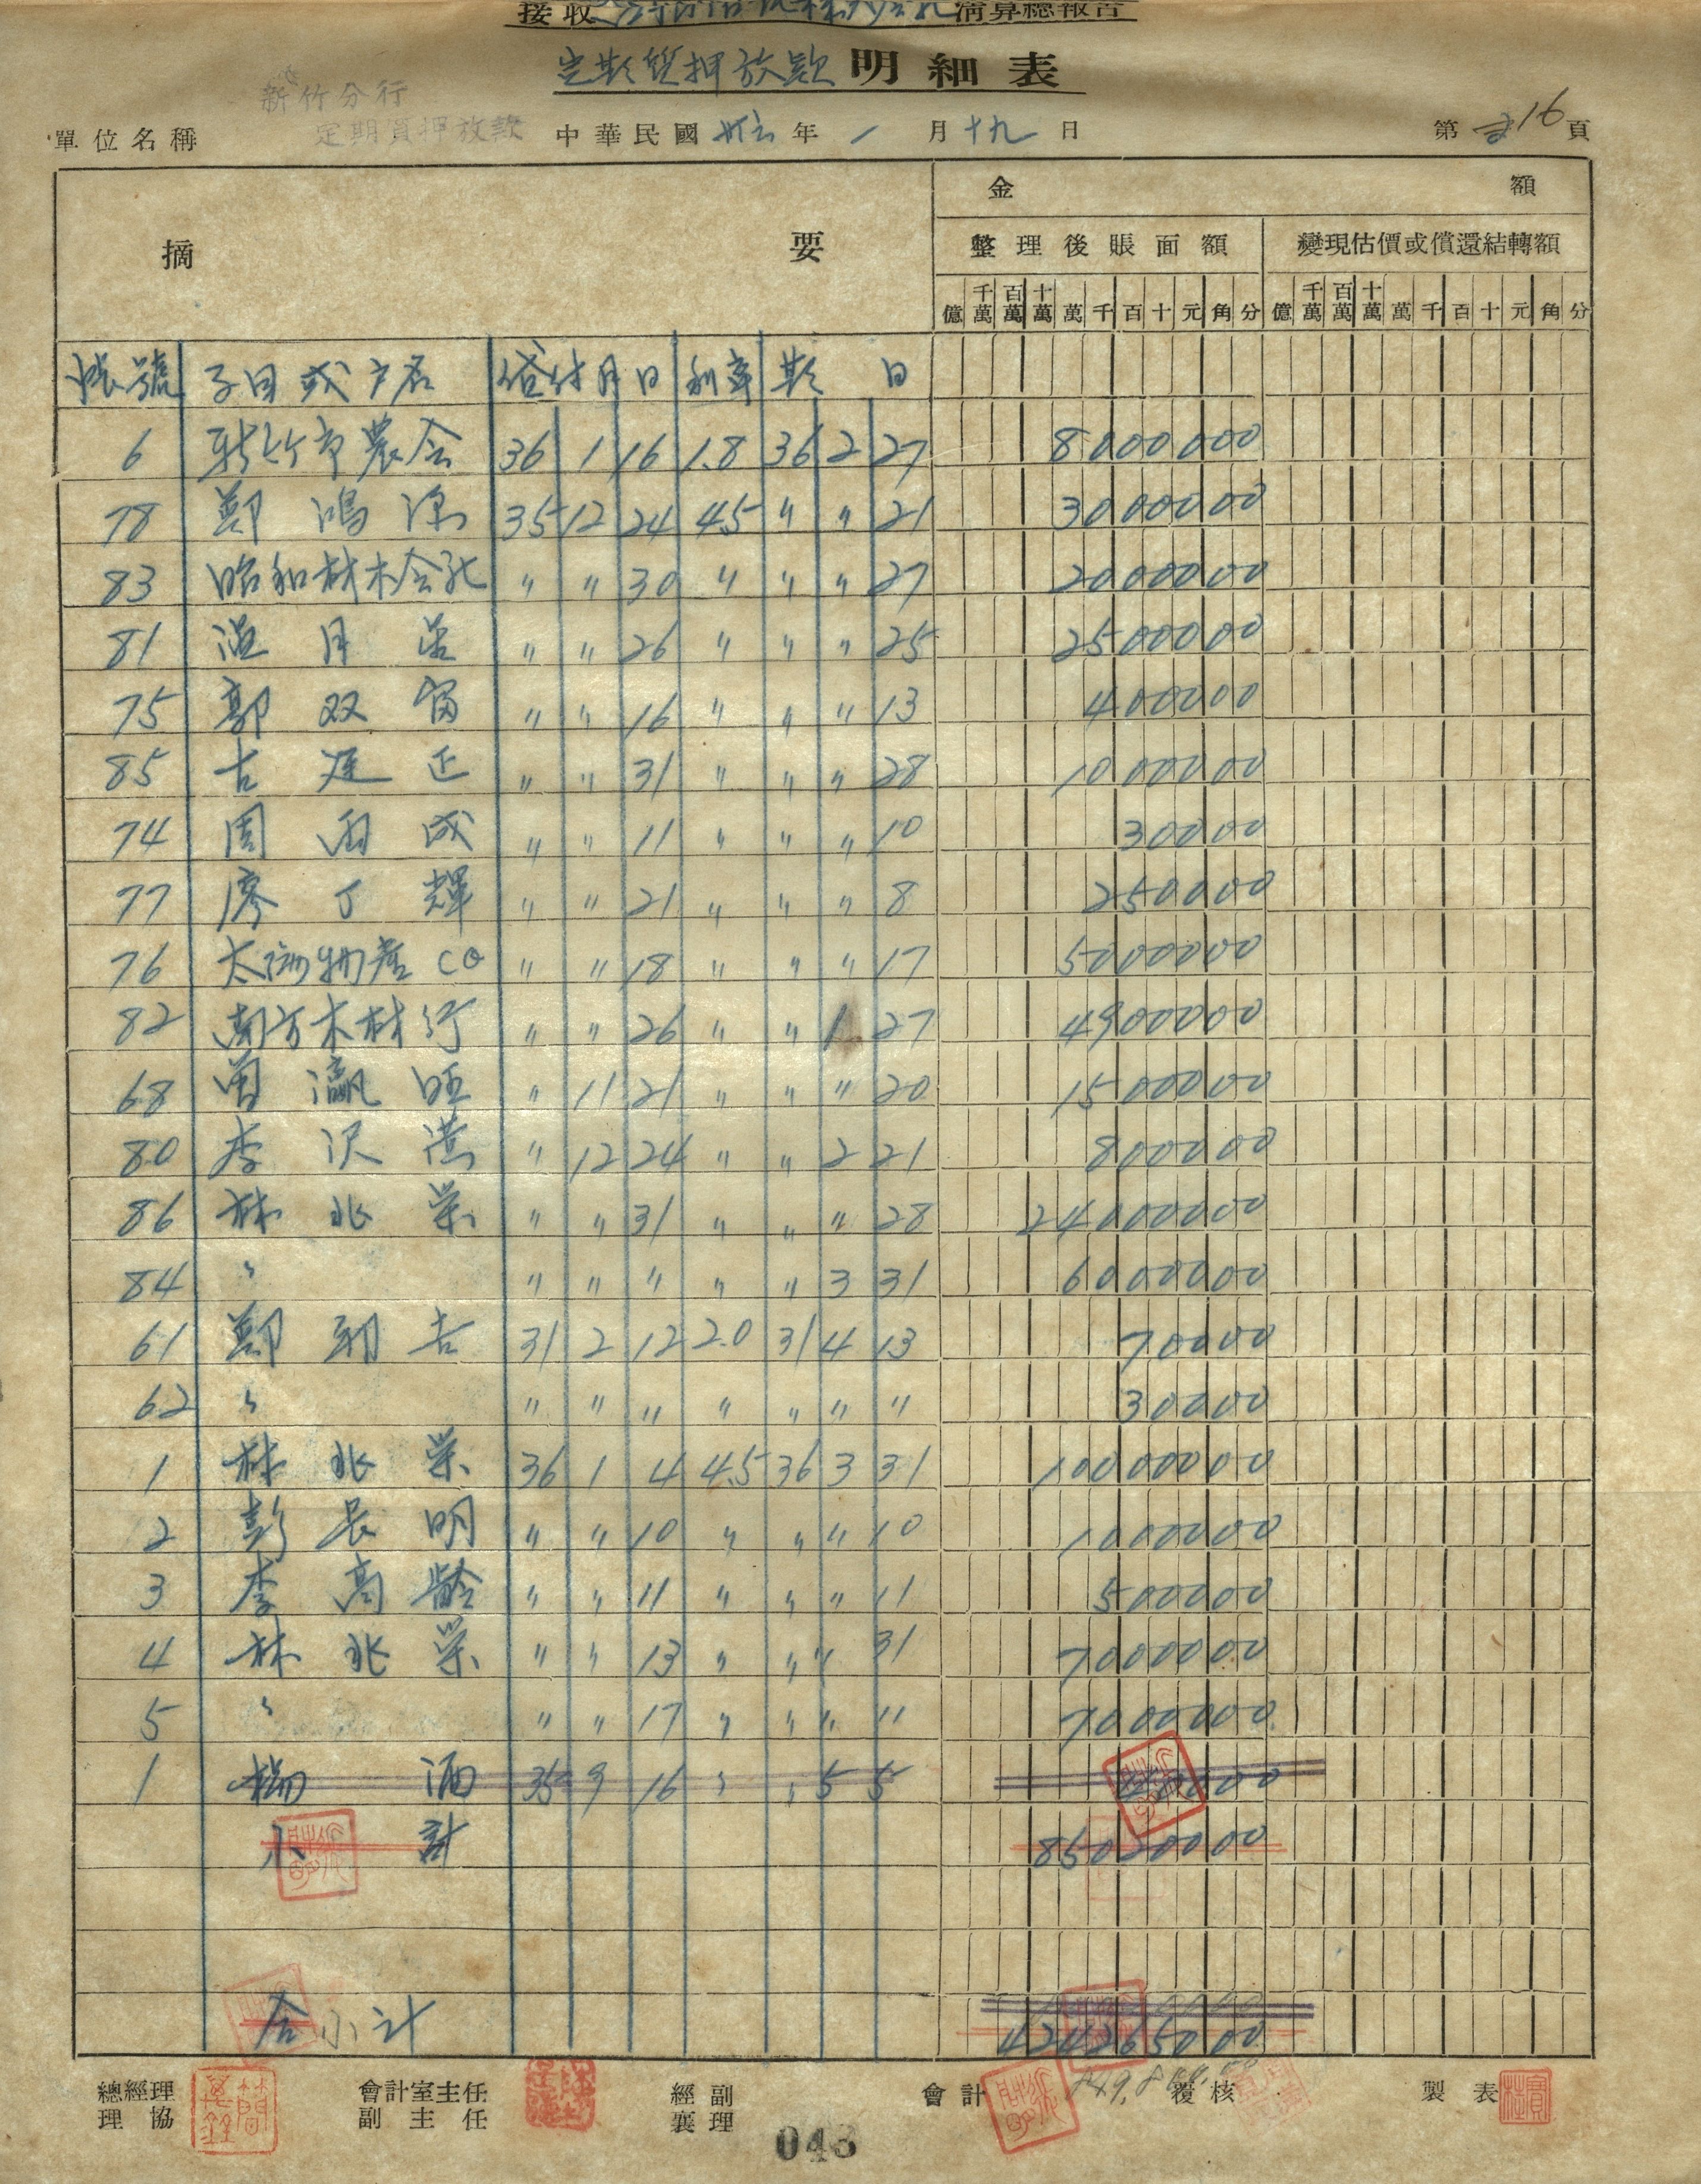 接收 清算總報告
定期質押放款 明細表
新竹分行
定期質押放款
單位名稱 中華民國卅六年一月十九日 第16頁
摘要 金額
整理後賬面額 變現估價或償還結轉額
億 千萬 百萬 十萬 萬 千 百 十 元 角 分 億 千萬 百萬 十萬 萬 千 百 十 元 角 分
帳號 子目或户名 貸付月日 利率 期日
6 新竹市農会 36 1 16 1.8 36 2 27 8000000
78 鄭鴻源 35 12 24 4.5 〃 〃 21 3000000
83 昭和材木会社 〃 〃 30 〃 〃 〃 27 2000000
81 月 〃 〃 26 〃 〃 〃 25 2500000
75 郭双 〃 〃 16 〃 〃 〃 13 400000
85 古廷正 〃 〃 31 〃 〃 〃 28 1000000
74 周成 〃 〃 11 〃 〃 〃 10 30000
77 廖丁輝 〃 〃 21 〃 〃 〃 8 250000
76 太湖物產 CO 〃 〃 18 〃 〃 〃 17 5000000
82 南方木材行 〃 〃 26 〃 〃 1 27 4900000
68 曾瀛 〃 11 21 〃 〃 〃 20 1500000
80 李沢 〃 12 24 〃 〃 2 21 800000
86 林兆栄 〃 〃 31 〃 〃 〃 28 24000000
84 〃 〃 〃 〃 〃 〃 3 31 6000000
61 鄭吉 31 2 12 2.0 31 4 13 70000
62 〃 〃 〃 〃 〃 〃 〃 〃 30000
1 林兆栄 36 1 4 4.5 36 3 31 10000000
2 彭長明 〃 〃 10 〃 〃 〃 10 1000000
3 李高齡 〃 〃 11 〃 〃 〃 11 500000
4 林兆栄 〃 〃 13 〃 〃 〃 31 7000000
5 〃 〃 〃 17 〃 〃 〃 〃 7000000
1 楊酒 35 9 16 〃 〃 5 5
小計 85020000
合小計 424265000
總經理 協理 會計室主任 副主任 經副襄理 會計 覆核 製表
043